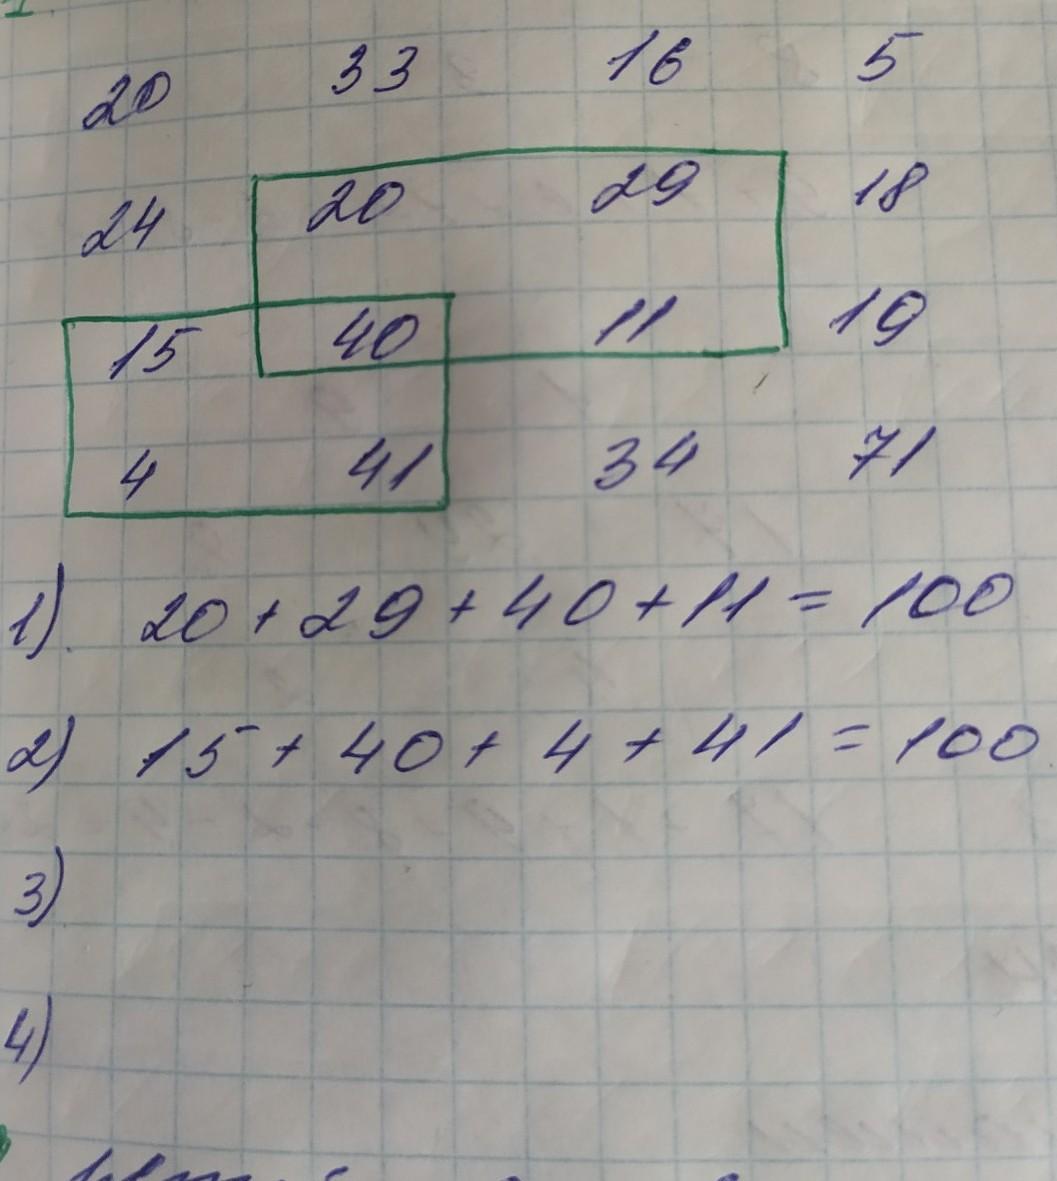 20 33 16 5
24 20 29 18
15 40 11 19
4 41 34 71
1) 20 + 29 + 40 + 11 = 100
2) 15 + 40 + 4 + 41 = 100
3)
4)